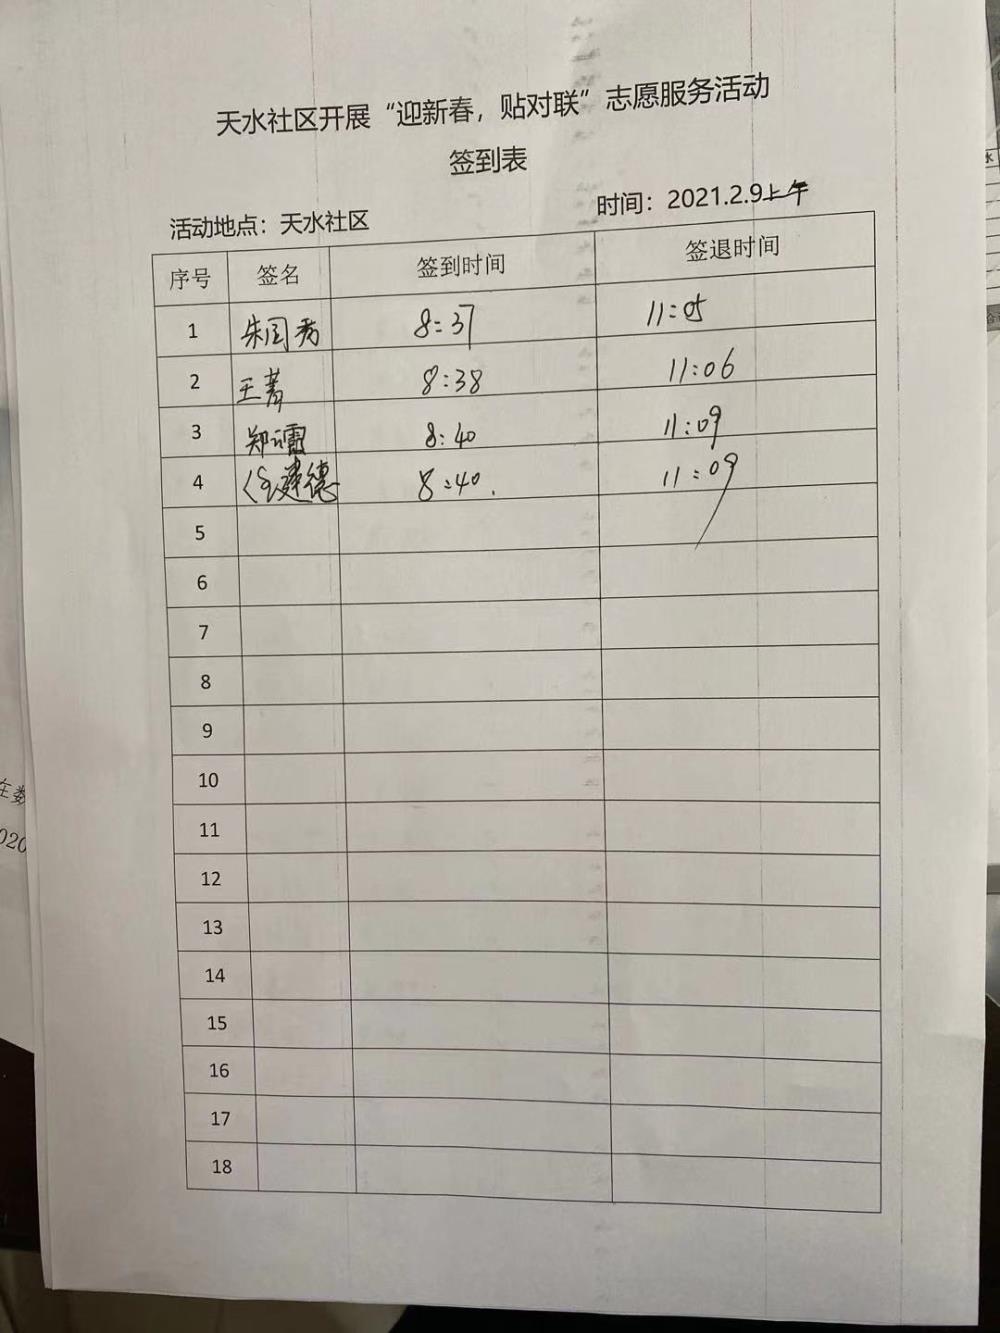 天水社区开展“迎新春，贴对联”志愿服务活动
签到表
活动地点：天水社区 时间：2021.2.9上午
序号 签名 签到时间 签退时间
1 朱国秀 8:37 11:05
2 王菁 8:38 11:06
3 郑 8:40 11:09
4 建德 8:40. 11:09
5
6
7
8
9
10
11
12
13
14
15
16
17
18
在数
020